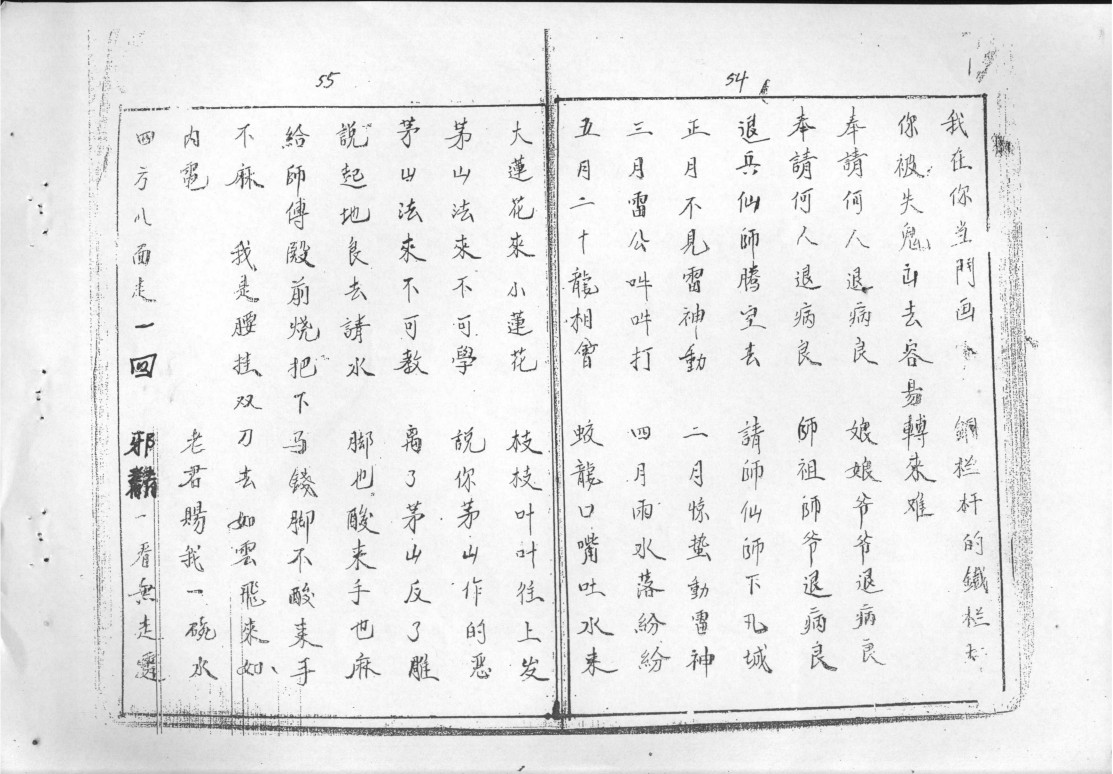 54
我在你当門画 銅栏杆的鐵栏
你被失鬼 去容易轉来难
奉請何人退病良 娘娘爷爷退病良
奉請何人退病良 師祖師爷退病良
退兵仙師腾空去 請師仙師下凡城
正月不見雷神動 二月惊蛰動雷神
三月雷公吽吽打 四月雨水落紛紛
五月二十龍相會 蛟龍口嘴吐水来
55
大蓮花來小蓮花 枝枝叶叶往上发
茅山法來不可學 説你茅山作的恶
茅山法來不可教 离了茅山反了雕
説起地良去請水 脚也酸来手也麻
給師傅殿前烧把下马錢脚不酸来手
不麻 我是腰挂双刀去如雲飛来如
内電 老君賜我一碗水
四方八面走一回 邪 一看無走